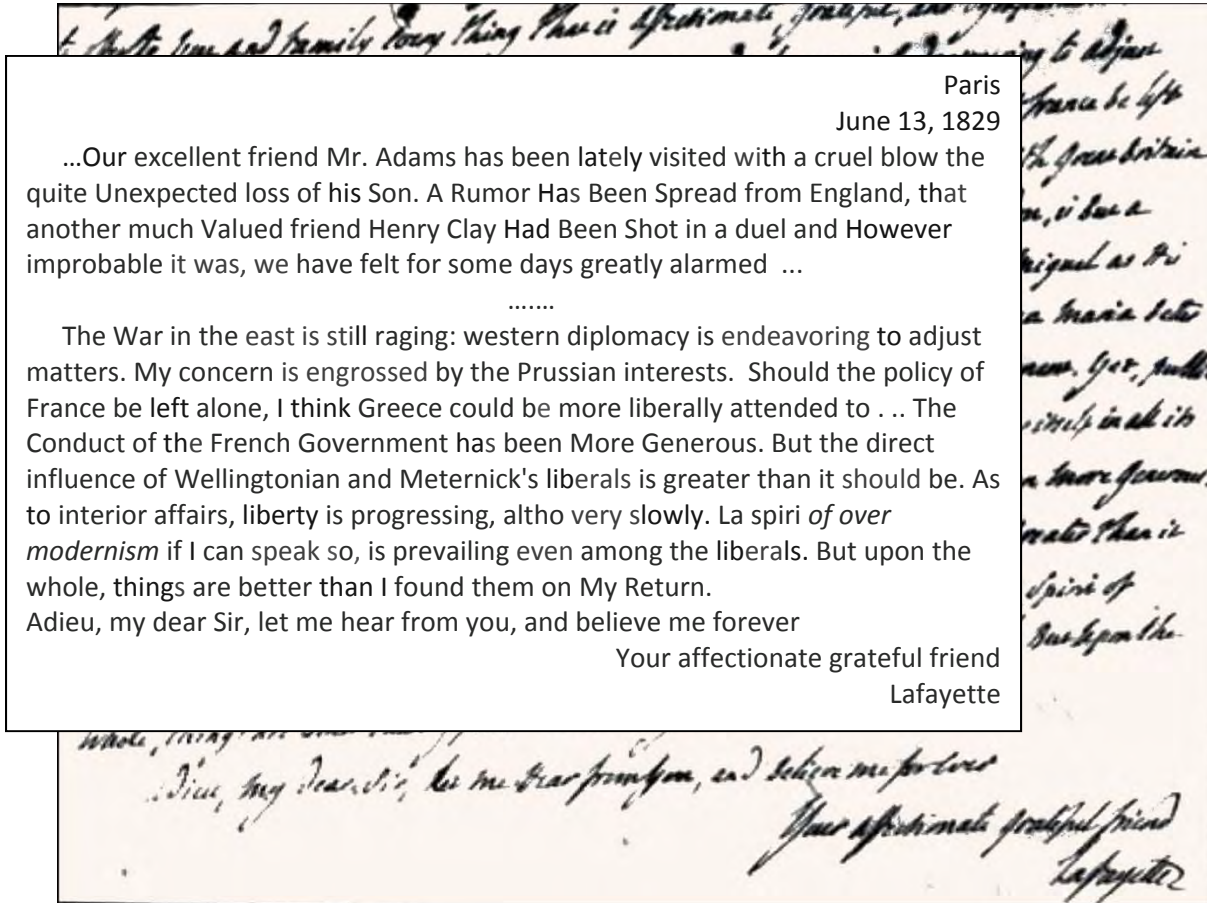 t
time and family every thing that is affectionate, grateful, and
to adjust
Paris
france be left
June 13, 1829
…Our excellent friend Mr. Adams has been lately visited with a cruel blow the
th great britain
quite Unexpected loss of his Son. A Rumor Has Been Spread from England, that
is but a
another much Valued friend Henry Clay Had Been Shot in a duel and However
miguel as His
improbable it was, we have felt for some days greatly alarmed ...
…....
a maria
The War in the east is still raging: western diplomacy is endeavoring to adjust
matters. My concern is engrossed by the Prussian interests. Should the policy of
France be left alone, I think Greece could be more liberally attended to . .. The
itself in all its
Conduct of the French Government has been More Generous. But the direct
more generous.
influence of Wellingtonian and Meternick's liberals is greater than it should be. As
greater than it
to interior affairs, liberty is progressing, altho very slowly. La spiri of over
modernism if I can speak so, is prevailing even among the liberals. But upon the
Spirit of
whole, things are better than I found them on My Return.
But upon the
Adieu, my dear Sir, let me hear from you, and believe me forever
Your affectionate grateful friend
Lafayette
whole, things are
Adieu, my dear Sir, let me hear from you, and believe me for ever
Your affectionate grateful friend
Lafayette